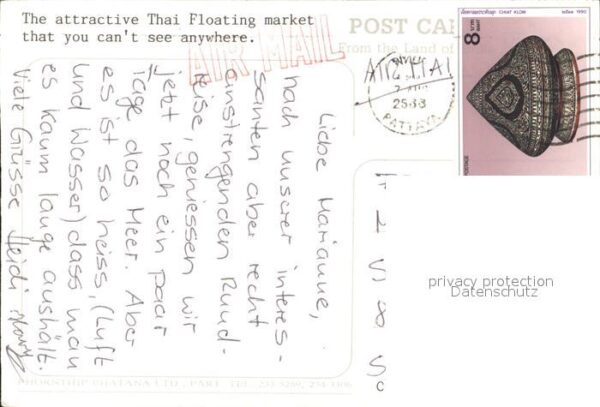 The attractive Thai Floating market
that you can't see anywhere.
POST CA
From the Land of
AIR MAIL
PATTAYA
8
BAHT
CHIAT KLOM
1990
POSTAGE
Liebe Marianne,
nach unserer interes-
santen aber recht
anstrengenden Rund-
reise, geniessen wir
jetzt noch ein paar
Tage das Meer. Aber
es ist so heiss, (Luft
und Wasser) dass man
es kaum lange aushält.
Viele Grüsse Heidi
privacy protection
Datenschutz
PHORNTHIP PHATANA LTD., PART. TEL.